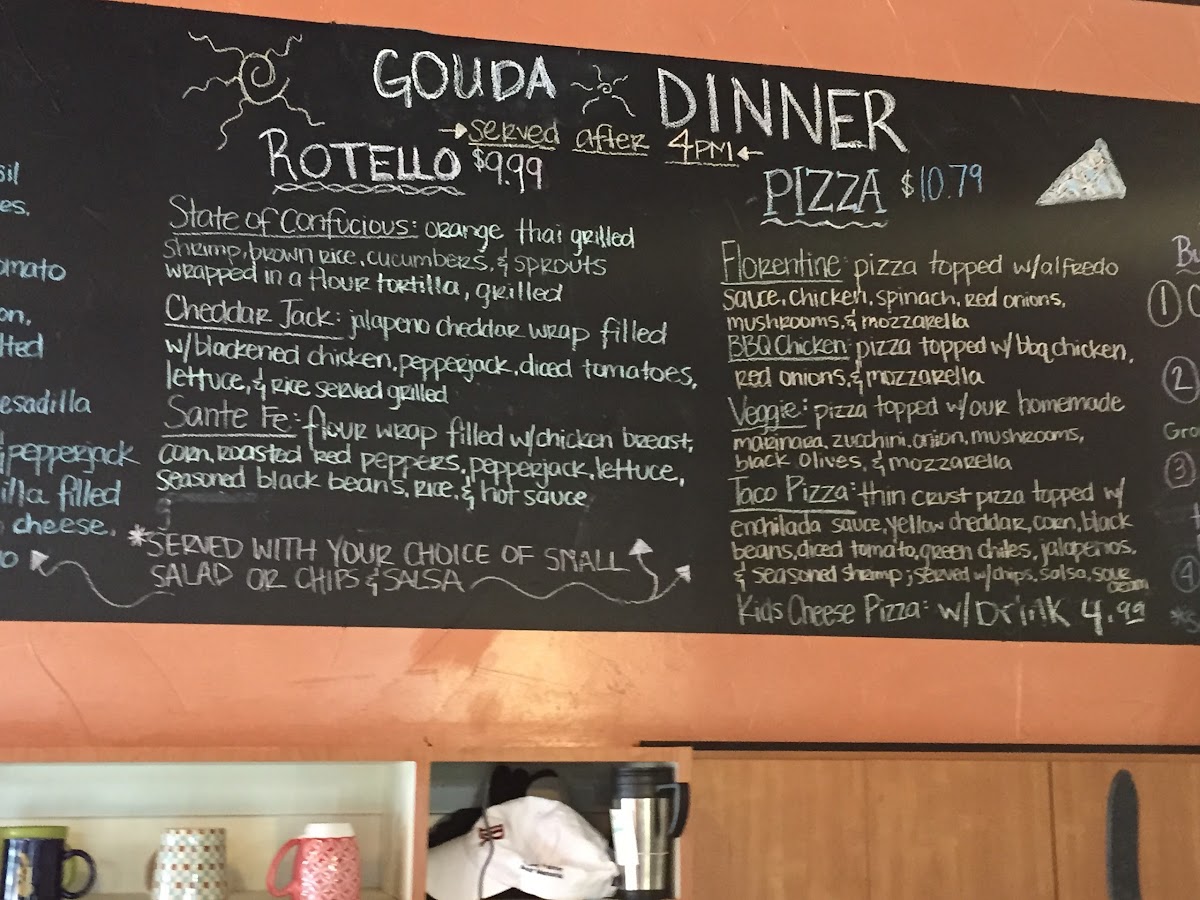 GOUDA DINNER
→ served after 4PM ←
ROTELLO $9.99
State of Confucious: orange thai grilled
shrimp, brown rice, cucumbers, & sprouts
wrapped in a flour tortilla, grilled
Cheddar Jack: jalapeno cheddar wrap filled
w/blackened chicken, pepperjack, diced tomatoes,
lettuce, & rice served grilled
Sante Fe: flour wrap filled w/chicken breast,
corn, roasted red peppers, pepperjack, lettuce,
seasoned black beans, rice, & hot sauce
*SERVED WITH YOUR CHOICE OF SMALL
SALAD OR CHIPS & SALSA
PIZZA $10.79
Florentine: pizza topped w/alfredo
sauce, chicken, spinach, red onions,
mushrooms, & mozzarella
BBQ Chicken: pizza topped w/ bbq chicken,
red onions, & mozzarella
Veggie: pizza topped w/our homemade
marinara, zucchini, onion, mushrooms,
black olives, & mozzarella
Taco Pizza: thin crust pizza topped w/
enchilada sauce, yellow cheddar, corn, black
beans, diced tomato, green chiles, jalapenos,
& seasoned shrimp; served w/chips, salsa, sour
cream
Kids Cheese Pizza: w/Drink 4.99
es.
omato
on,
lted
esadilla
& pepperjack
illa filled
cheese.
1
2
3
4